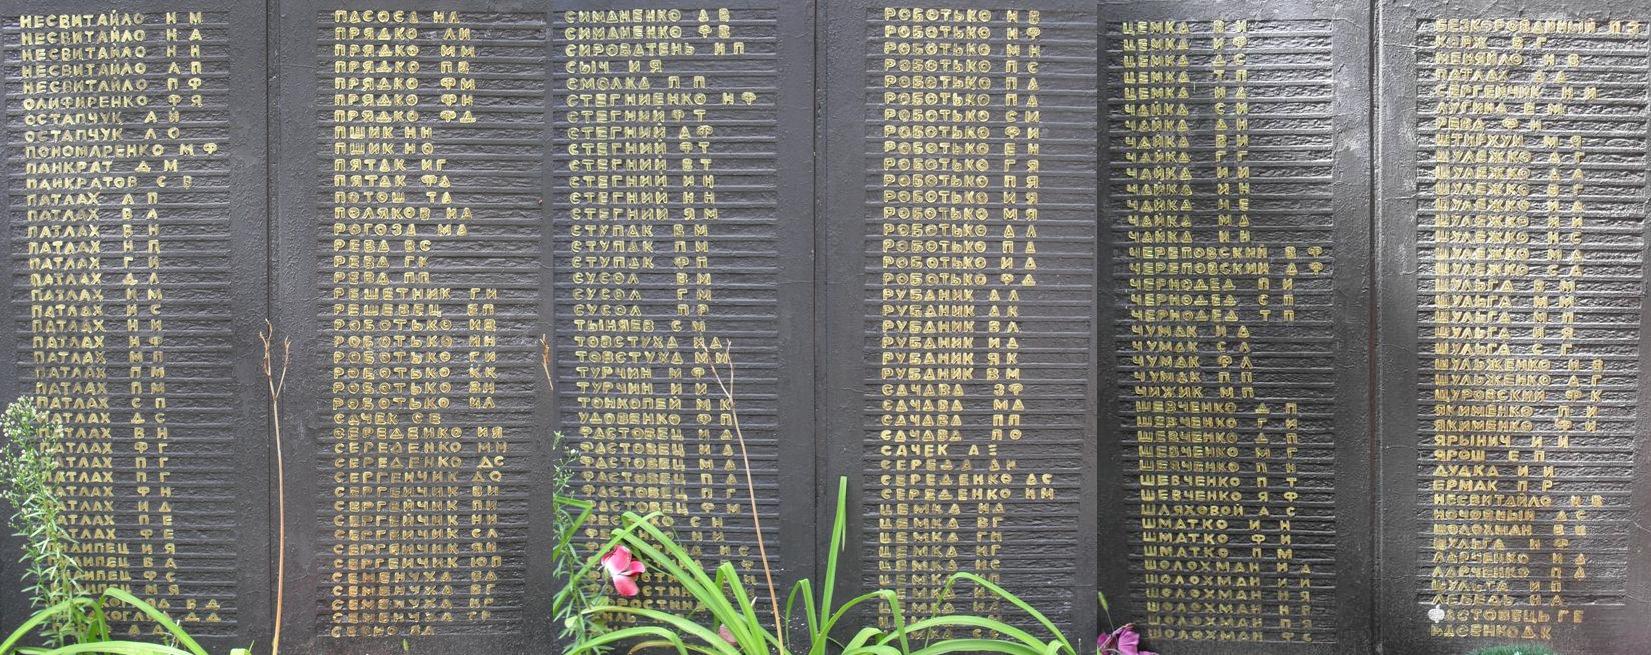 НЕСВИТАЙЛО Н М
НЕСВИТАЙЛО Н А
НЕСВИТАЙЛО Н Н
НЕСВИТАЙЛО А П
НЕСВИТАЙЛО П Ф
ОЛИФИРЕНКО Ф Я
ОСТАПЧУК А Й
ОСТАПЧУК Л О
ПОНОМАРЕНКО М Ф
ПАНКРАТ Д М
ПАНКРАТОВ С В
ПАТЛАХ А П
ПАТЛАХ В А
ПАТЛАХ В Н
ПАТЛАХ Н П
ПАТЛАХ Г И
ПАТЛАХ Д Л
ПАТЛАХ И М
ПАТЛАХ И С
ПАТЛАХ Н И
ПАТЛАХ Н Ф
ПАТЛАХ М П
ПАТЛАХ П М
ПАТЛАХ П М
ПАТЛАХ С П
ПАТЛАХ Д С
ПАТЛАХ В Н
ПАТЛАХ Ф Г
ПАТЛАХ П Г
ПАТЛАХ П Г
ПАТЛАХ Ф Н
ПАТЛАХ И Д
ПАТЛАХ П Е
И В
В А
Ф С
М Я
В Д
Д Д
ПАСОСА Н Л
ПРЯДКО Л И
ПРЯДКО М М
ПРЯДКО П В
ПРЯДКО Ф И
ПРЯДКО Ф Н
ПРЯДКО Ф Д
ПШИК Н Н
ПШИК Н О
ПЯТАК И Г
ПЯТАК Ф Д
ПОТОШ Т А
ПОЛЯКОВ И А
РОГОЗА М А
РЕВА В С
РЕВА Г К
РЕВА П П
РЕШЕТНИК Г И
РЕШЕВЕЦ В П
РОБОТЬКО И В
РОБОТЬКО И Н
РОБОТЬКО Г И
РОБОТЬКО К К
РОБОТЬКО В Н
РОБОТЬКО И Л
САЧЕК С В
СЕРЕДЕНКО И Я
СЕРЕДЕНКО М Н
СЕРЕДЕНКО Д С
СЕРГЕЙЧИК Д О
СЕРГЕЙЧИК В И
СЕРГЕЙЧИК П И
СЕРГЕЙЧИК Н И
СЕРГЕЙЧИК С Л
СЕРГЕЙЧИК Я И
СЕРГЕЙЧИК Ю П
СЕМЕНУХА В Д
СЕМЕНУХА В Г
СЕМЕНУХА К Г
СЕМЕНУХА И Г
СИМАНЕНКО Д В
СИМАНЕНКО Ф В
СИРОВАТЕНЬ И П
СЫЧ И Я
СМОЛКА П П
СТЕГНИЕНКО Н Ф
СТЕГНИЙ Ф Т
СТЕГНИЙ Д Ф
СТЕГНИЙ Ф Т
СТЕГНИЙ В Т
СТЕГНИЙ И Н
СТЕГНИЙ И Н
СТЕГНИЙ Я М
СТУПАК В М
СТУПАК П М
СТУПАК Ф П
СУСОЛ В И
СУСОЛ Г М
СУСОЛ П Р
ТЫНЯЕВ С М
ТОВСТУХА И Д
ТОВСТУХА М И
ТУРЧИН И Ф
ТУРЧИН И П
ТОНКОПЕЙ М К
УДОВЕНКО Ф В
ФАСТОВЕЦ И Д
ФАСТОВЕЦ И Д
ФАСТОВЕЦ М Д
ФАСТОВЕЦ П Д
ФАСТОВЕЦ П Г
ФАСТОВЕЦ Ф М
С Н
Н И
РОБОТЬКО Н В
РОБОТЬКО Н Ф
РОБОТЬКО М Н
РОБОТЬКО П С
РОБОТЬКО П А
РОБОТЬКО П А
РОБОТЬКО С И
РОБОТЬКО Ф И
РОБОТЬКО Е Н
РОБОТЬКО Г Я
РОБОТЬКО П Я
РОБОТЬКО И Я
РОБОТЬКО М Я
РОБОТЬКО Д Л
РОБОТЬКО П Д
РОБОТЬКО И Д
РОБОТЬКО Ф Д
РУБАНИК А Л
РУБАНИК А К
РУБАНИК В Л
РУБАНИК И Д
РУБАНИК Я К
РУБАНИК В М
САЧАВА З Ф
САЧАВА М Д
САЧАВА П П
САЧАВА П О
САЧЕК А Е
СЕРЕДА Д Н
СЕРЕДЕНКО Д С
СЕРЕДЕНКО И М
ЦЕМКА Н А
ЦЕМКА В Г
ЦЕМКА Г М
ЦЕМКА И Г
ЦЕМКА И С
ЦЕМКА И П
ЦЕМКА В И
ЦЕМКА И Ф
ЦЕМКА Д С
ЦЕМКА Т П
ЦЕМКА И Д
ЧАЙКА С И
ЧАЙКА Д Н
ЧАЙКА В И
ЧАЙКА Г Г
ЧАЙКА И Г
ЧАЙКА И Н
ЧАЙКА Н Е
ЧАЙКА М Д
ЧАЙКА И Н
ЧЕРЕПОВСКИЙ В Ф
ЧЕРЕПОВСКИЙ Д Ф
ЧЕРНОДЕД П И
ЧЕРНОДЕД С П
ЧЕРНОДЕД Т П
ЧУМАК И Д
ЧУМАК С Л
ЧУМАК Ф Л
ЧУМАК П П
ЧИЖИК М П
ШЕВЧЕНКО Д П
ШЕВЧЕНКО Г И
ШЕВЧЕНКО Д П
ШЕВЧЕНКО М Г
ШЕВЧЕНКО П Н
ШЕВЧЕНКО П Т
ШЕВЧЕНКО Я Ф
ШЛЯХОВОЙ А С
ШМАТКО И Н
ШМАТКО Ф И
ШМАТКО П М
ШОЛОХМАН И Д
ШОЛОХМАН И Й
ШОЛОХМАН И Я
ШОЛОХМАН Н В
ШОЛОХМАН П Г
ШОЛОХМАН Ф С
БЕЗКОРОВАЙНЫЙ П З
КОРЖ В Г
МЕНЯЙЛО Н В
ПАТЛАХ Д Д
СЕРГЕЙЧИК Н И
ЛУГИНА Е М
РЕВА Ф Н
ШТИРХУН М Ф
ШУЛЕЖКО А Г
ШУЛЕЖКО Г А
ШУЛЕЖКО В Г
ШУЛЕЖКО Я И
ШУЛЕЖКО И Н
ШУЛЕЖКО Н С
ШУЛЕЖКО О Г
ШУЛЕЖКО С А
ШУЛЬГА В М
ШУЛЬГА М М
ШУЛЬГА М П
ШУЛЬГА И Я
ШУЛЬГА С Г
ШУЛЬЖЕНКО Н В
ШУЛЬЖЕНКО А Г
ЩУРОВСКИЙ Ф К
ЯКИМЕНКО П И
ЯКИМЕНКО Ф И
ЯРЫНИЧ И И
ЯРОШ Е П
ДУДКА И И
ЕРМАК П Р
НЕСВИТАЙЛО Н В
НОЧОВНЫЙ Д С
ШОЛОХМАН В Е
ШУЛЬГА Н Ф
ЛАРЧЕНКО И А
ЛАРЧЕНКО П А
ШУЛЬГА И П
ЛЕБЕДЬ Н А
ФАСТОВЕЦЬ Г Е
ВАСЕНКО Д К